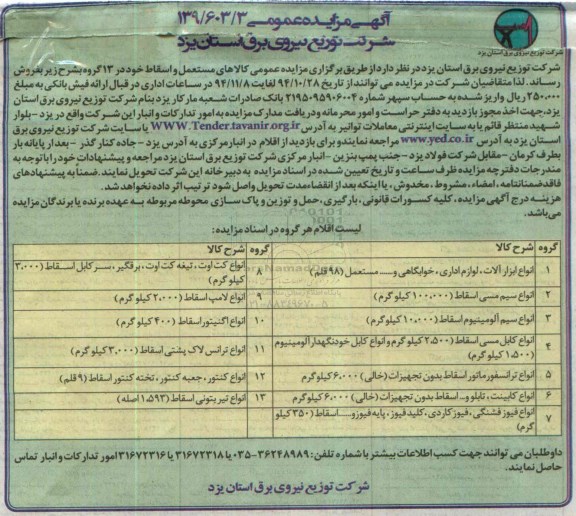 آگهی مزایده عمومی ۱۳۹/۶۰۳/۳
شرکت توزیع نیروی برق استان یزد
شرکت توزیع نیروی برق استان یزد
شرکت توزیع نیروی برق استان یزد در نظر دارد از طریق برگزاری مزایده عمومی کالاهای مستعمل و اسقاط خود در ۱۳ گروه بشرح زیر بفروش
رساند. لذا متقاضیان شرکت در مزایده می توانند از تاریخ ۹۴/۱۰/۲۸ لغایت ۹۴/۱۱/۸ در ساعات اداری در قبال ارائه فیش بانکی به مبلغ
۲۵۰,۰۰۰ ریال واریز شده به حساب سپهر شماره ۲۱۹۵۰۹۵۹۰۶۰۰۲ بانک صادرات شعبه مارکار یزد بنام شرکت توزیع نیروی برق استان
یزد، جهت اخذ مجوز بازدید به دفتر حراست و امور محرمانه و دریافت مدارک مزایده به امور تدارکات و انبار این شرکت واقع در یزد - بلوار
شهید منتظر قائم یا به سایت اینترنتی معاملات توانیر به آدرس WWW.Tender.tavanir.org.ir یا سایت شرکت توزیع نیروی برق
استان یزد به آدرس www.yed.co.ir مراجعه نمایند و برای بازدید از اقلام در انبار مرکزی به آدرس یزد - جاده کنار گذر - بعد از پایانه بار
بطرف کرمان - مقابل شرکت فولاد یزد - جنب پمپ بنزین - انبار مرکزی شرکت توزیع برق استان یزد مراجعه و پیشنهادات خود را با توجه به
مندرجات دفترچه مزایده ظرف ساعت و تاریخ تعیین شده در اسناد مزایده به دبیرخانه این شرکت تحویل نمایند. ضمناً به پیشنهادهای
فاقد ضمانتنامه، امضاء، مشروط، مخدوش، یا اینکه بعد از انقضاء مدت تحویل واصل شود ترتیب اثر داده نخواهد شد.
هزینه درج آگهی مزایده، کلیه کسورات قانونی، بارگیری، حمل و توزین و پاک سازی محوطه مربوطه به عهده برنده یا برندگان مزایده
می‌باشد.
لیست اقلام هر گروه در اسناد مزایده:
گروه شرح کالا گروه شرح کالا
۱ انواع ابزار آلات، لوازم اداری، خوابگاهی و..... مستعمل (۹۸ قلم)
۸ انواع کت اوت، تیغه کت اوت، برقگیر، سرکابل اسقاط (۳,۰۰۰
کیلو گرم)
۲ انواع سیم مسی اسقاط (۱۰۰,۰۰۰ کیلو گرم)
۹ انواع لامپ اسقاط (۲,۰۰۰ کیلو گرم)
۳ انواع سیم آلومینیوم اسقاط (۱۰,۰۰۰ کیلو گرم)
۱۰ انواع اگنیتور اسقاط (۴۰۰ کیلو گرم)
۴ انواع کابل مسی اسقاط (۲,۵۰۰ کیلو گرم و انواع کابل خودنگهدار آلومینیوم
(۱,۵۰۰ کیلو گرم)
۱۱ انواع ترانس لاک پشتی اسقاط (۳,۰۰۰ کیلو گرم)
۵ انواع ترانسفورماتور اسقاط بدون تجهیزات (خالی) ۶,۰۰۰ کیلوگرم
۱۲ انواع کنتور، جعبه کنتور، تخته کنتور اسقاط (۹ قلم)
۶ انواع کابینت، تابلو و... اسقاط بدون تجهیزات (خالی) ۶,۰۰۰ کیلوگرم
۱۳ انواع تیر بتونی اسقاط (۱,۵۹۳ اصله)
۷ انواع فیوز فشنگی، فیوز کاردی، کلید فیوز، پایه فیوز و..... اسقاط (۳۵۰ کیلو
گرم)
داوطلبان می توانند جهت کسب اطلاعات بیشتر با شماره تلفن: ۳۶۲۴۸۹۸۹-۰۳۵ یا ۳۱۶۷۲۳۱۸ یا ۳۱۶۷۲۳۱۶ امور تدارکات و انبار تماس
حاصل نمایند.
شرکت توزیع نیروی برق استان یزد